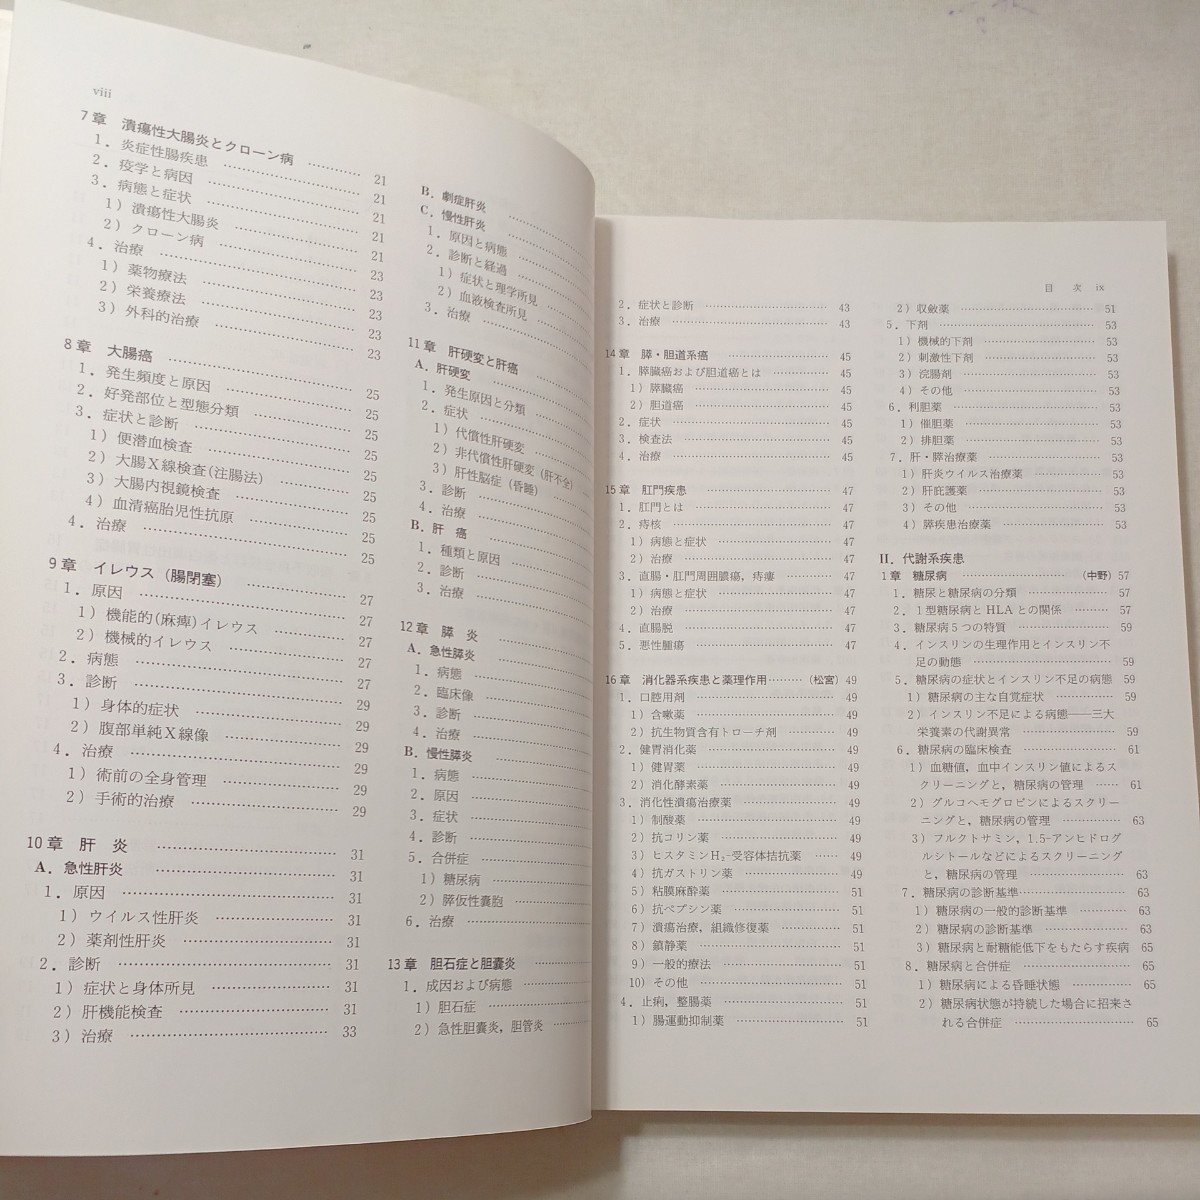 viii
7章 潰瘍性大腸炎とクローン病 …… 21
1．炎症性腸疾患 …… 21
2．疫学と病因 …… 21
3．病態と症状 …… 21
1）潰瘍性大腸炎 …… 21
2）クローン病 …… 23
4．治療 …… 23
1）薬物療法 …… 23
2）栄養療法 …… 23
3）外科的治療 …… 23
8章 大腸癌 …… 25
1．発生頻度と原因 …… 25
2．好発部位と型態分類 …… 25
3．症状と診断 …… 25
1）便潜血検査 …… 25
2）大腸X線検査(注腸法) …… 25
3）大腸内視鏡検査 …… 25
4）血清癌胎児性抗原 …… 25
4．治療 …… 25
9章 イレウス（腸閉塞） …… 27
1．原因 …… 27
1）機能的(麻痺)イレウス …… 27
2）機械的イレウス …… 27
2．病態 …… 27
3．診断 …… 29
1）身体的症状 …… 29
2）腹部単純X線像 …… 29
4．治療 …… 29
1）術前の全身管理 …… 29
2）手術的治療 …… 29
10章 肝 炎 …… 31
A．急性肝炎 …… 31
1．原因 …… 31
1）ウイルス性肝炎 …… 31
2）薬剤性肝炎 …… 31
2．診断 …… 31
1）症状と身体所見 …… 31
2）肝機能検査 …… 31
3）治療 …… 33
B．劇症肝炎 ……
C．慢性肝炎 ……
1．原因と病態 ……
2．診断と経過 ……
1）症状と理学所見 ……
2）血液検査所見 ……
3．治療 ……
11章 肝硬変と肝癌 ……
A．肝硬変 ……
1．発生原因と分類 ……
2．症状 ……
1）代償性肝硬変 ……
2）非代償性肝硬変（肝不全）
3）肝性脳症（昏睡） ……
3．診断 ……
4．治療 ……
B．肝 癌 ……
1．種類と原因 ……
2．診断 ……
3．治療 ……
12章 膵 炎 ……
A．急性膵炎 ……
1．病態 ……
2．臨床像 ……
3．診断 ……
4．治療 ……
B．慢性膵炎 ……
1．病態 ……
2．原因 ……
3．症状 ……
4．診断 ……
5．合併症 ……
1）糖尿病 ……
2）膵仮性嚢胞 ……
6．治療 ……
13章 胆石症と胆嚢炎 ……
1．成因および病態 ……
1）胆石症 ……
2）急性胆嚢炎，胆管炎 ……
目 次 ix
2．症状と診断 …… 43
3．治療 …… 43
14章 膵・胆道系癌 …… 45
1．膵臓癌および胆道癌とは …… 45
1）膵臓癌 …… 45
2）胆道癌 …… 45
2．症状 …… 45
3．検査法 …… 45
4．治療 …… 45
15章 肛門疾患 …… 47
1．肛門とは …… 47
2．痔核 …… 47
1）病態と症状 …… 47
2）治療 …… 47
3．直腸・肛門周囲膿瘍，痔瘻 …… 47
1）病態と症状 …… 47
2）治療 …… 47
4．直腸脱 …… 47
5．悪性腫瘍 …… 47
16章 消化器系疾患と薬理作用……（松宮）49
1．口腔用剤 …… 49
1）含嗽薬 …… 49
2）抗生物質含有トローチ剤 …… 49
2．健胃消化薬 …… 49
1）健胃薬 …… 49
2）消化酵素薬 …… 49
3．消化性潰瘍治療薬 …… 49
1）制酸薬 …… 49
2）抗コリン薬 …… 49
3）ヒスタミンH₂-受容体拮抗薬 …… 49
4）抗ガストリン薬 …… 49
5）粘膜麻酔薬 …… 51
6）抗ペプシン薬 …… 51
7）潰瘍治療，組織修復薬 …… 51
8）鎮静薬 …… 51
9）一般的療法 …… 51
10）その他 …… 51
4．止痢，整腸薬 …… 51
1）腸運動抑制薬 …… 51
2）収斂薬 …… 51
5．下剤 …… 53
1）機械的下剤 …… 53
2）刺激性下剤 …… 53
3）浣腸剤 …… 53
4）その他 …… 53
6．利胆薬 …… 53
1）催胆薬 …… 53
2）排胆薬 …… 53
7．肝・膵治療薬 …… 53
1）肝炎ウイルス治療薬 …… 53
2）肝庇護薬 …… 53
3）その他 …… 53
4）膵疾患治療薬 …… 53
II．代謝系疾患
1章 糖尿病 ……（中野）57
1．糖尿と糖尿病の分類 …… 57
2．1型糖尿病とHLAとの関係 …… 57
3．糖尿病5つの特質 …… 59
4．インスリンの生理作用とインスリン不
足の動態 …… 59
5．糖尿病の症状とインスリン不足の病態 59
1）糖尿病の主な自覚症状 …… 59
2）インスリン不足による病態──三大
栄養素の代謝異常 …… 59
6．糖尿病の臨床検査 …… 61
1）血糖値，血中インスリン値によるス
クリーニングと，糖尿病の管理 …… 61
2）グルコヘモグロビンによるスクリー
ニングと，糖尿病の管理 …… 63
3）フルクトサミン，1.5-アンヒドログ
ルシトールなどによるスクリーニング
と，糖尿病の管理 …… 63
7．糖尿病の診断基準…… 63
1）糖尿病の一般的診断基準 …… 63
2）糖尿病の診断基準 …… 63
3）糖尿病と耐糖能低下をもたらす疾病 65
8．糖尿病と合併症 …… 65
1）糖尿病による昏睡状態 …… 65
2）糖尿病状態が持続した場合に招来さ
れる合併症 …… 65